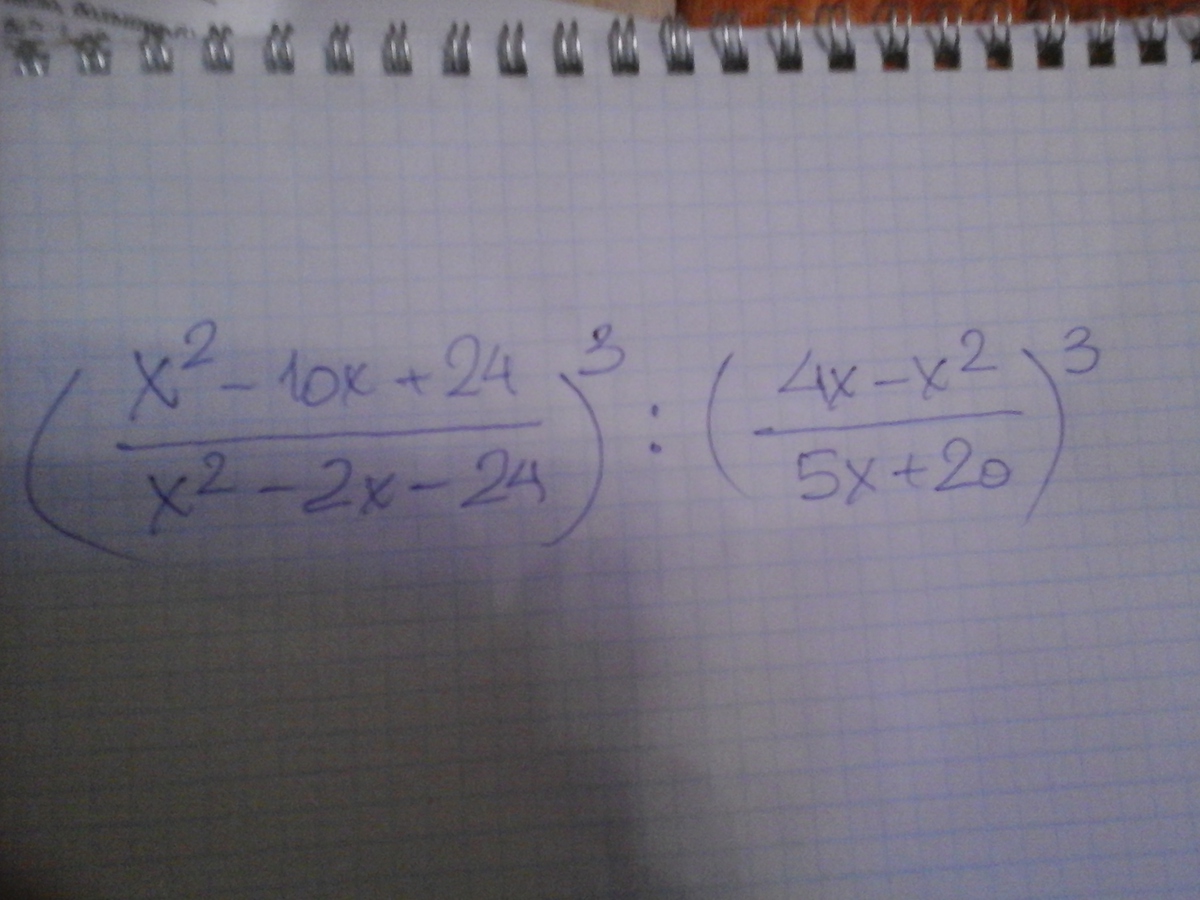 (x² - 10x + 24 / x² - 2x - 24)³ : (4x - x² / 5x + 20)³